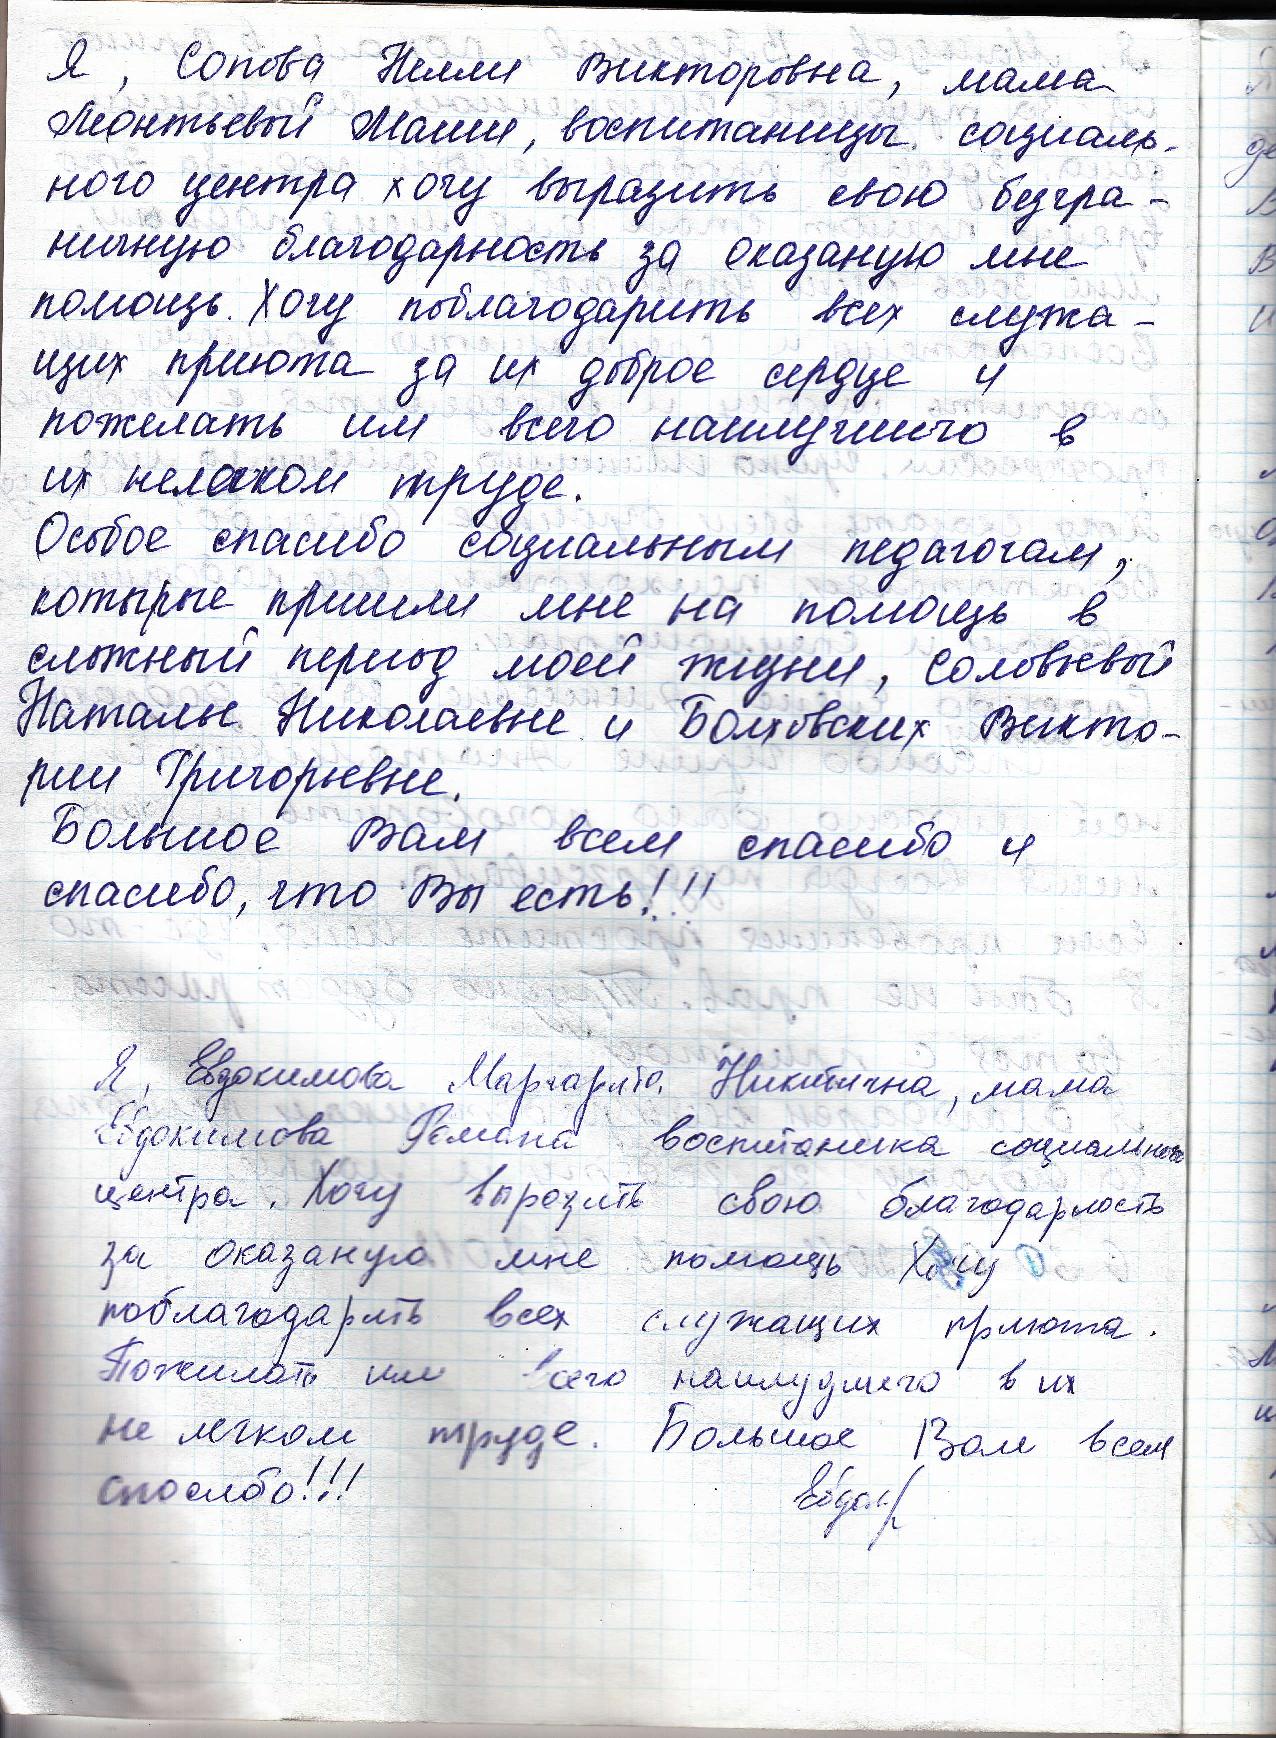 Я, Сопова Нелли Викторовна, мама
Леонтьевой Маши, воспитаницы социаль-
ного центра хочу выразить свою безгра-
ничную благодарность за оказаную мне
помощь. Хочу поблагодарить всех служа-
щих приюта за их доброе сердце и
пожелать им всего наилучшего в
их нелегком труде.
Особое спасибо социальным педагогам,
котырые пришли мне на помощь в
сложный период моей жизни, Соловьевый
Наталье Николаевне и Болховских Викто-
рии Григорьевне.
Большое Вам всем спасибо и
спасибо, что Вы есть!!!
Я, Евдокимова Маргарита Никитична, мама
Евдокимова Романа воспитаника социального
центра. Хочу выразить свою благодарность
за оказаную мне помощь Хочу
поблагодарить всех служащих приюта.
Пожилать им всего наилудшего в их
не легком труде. Большое Вам всем
спосибо!!!